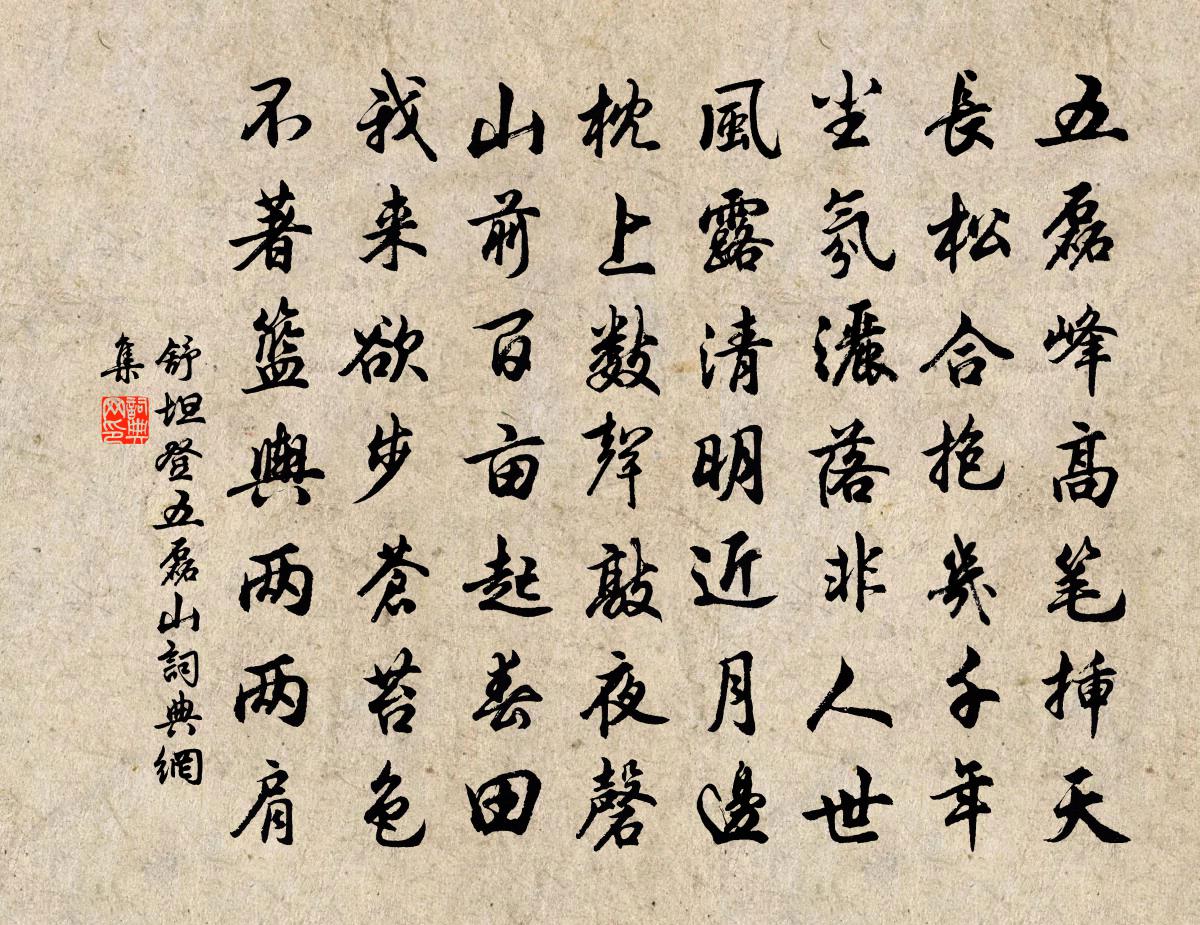 五磊峰高笔插天
長松合抱幾千年
尘氛灑落非人世
風露清明近月邊
枕上数聲敲夜磬
山前百亩起春田
我来欲步蒼苔色
不著籃輿两两肩
舒坦登五磊山詞典網
集
詞典网印